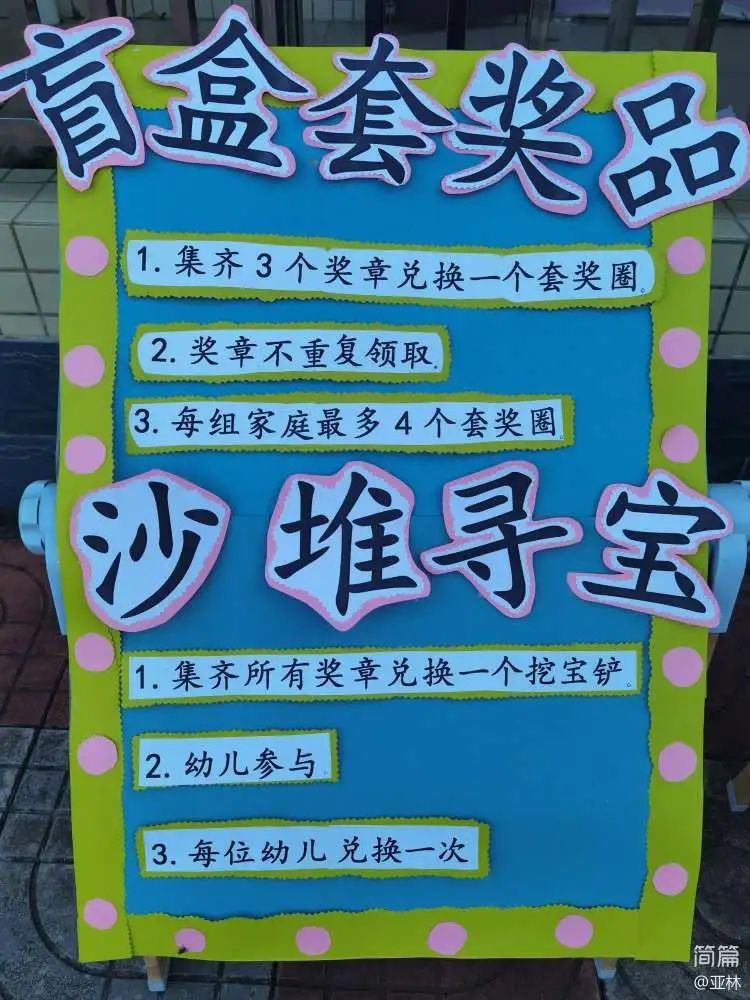 盲盒套奖品
1. 集齐 3 个奖章兑换一个套奖圈。
2. 奖章不重复领取。
3. 每组家庭最多 4 个套奖圈。
沙堆寻宝
1. 集齐所有奖章兑换一个挖宝铲。
2. 幼儿参与。
3. 每位幼儿 兑换一次
简篇
@亚林